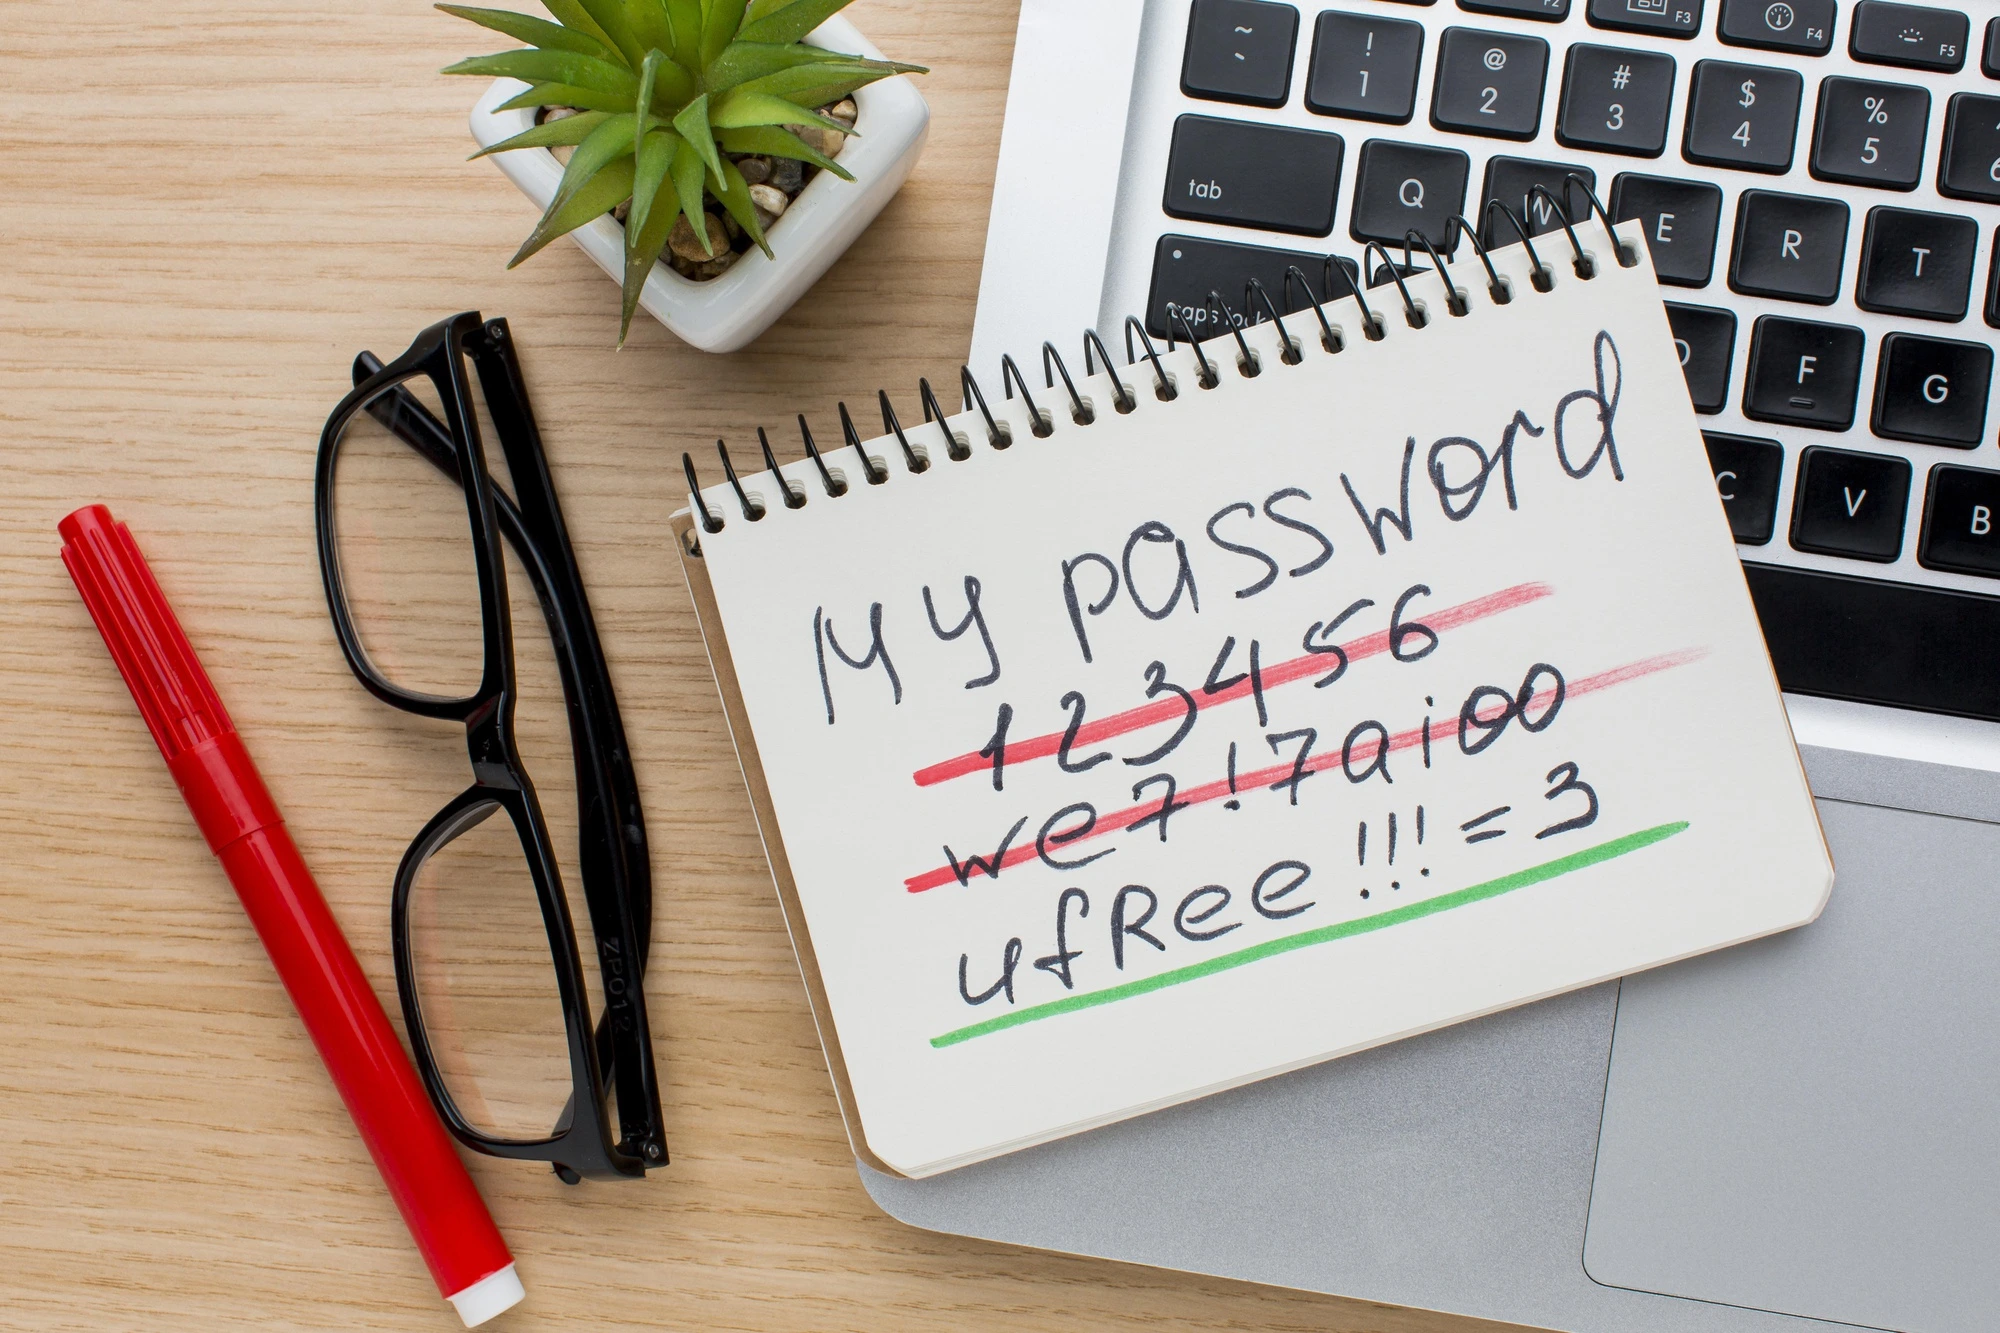 F2 F3 F4 F5
~ ` ! 1 @ 2 # 3 $ 4 % 5 6
tab Q W E R T
caps lock D F G
C V B
My password
123456
we7!7aioo
ufRee!!!=3
ZP012